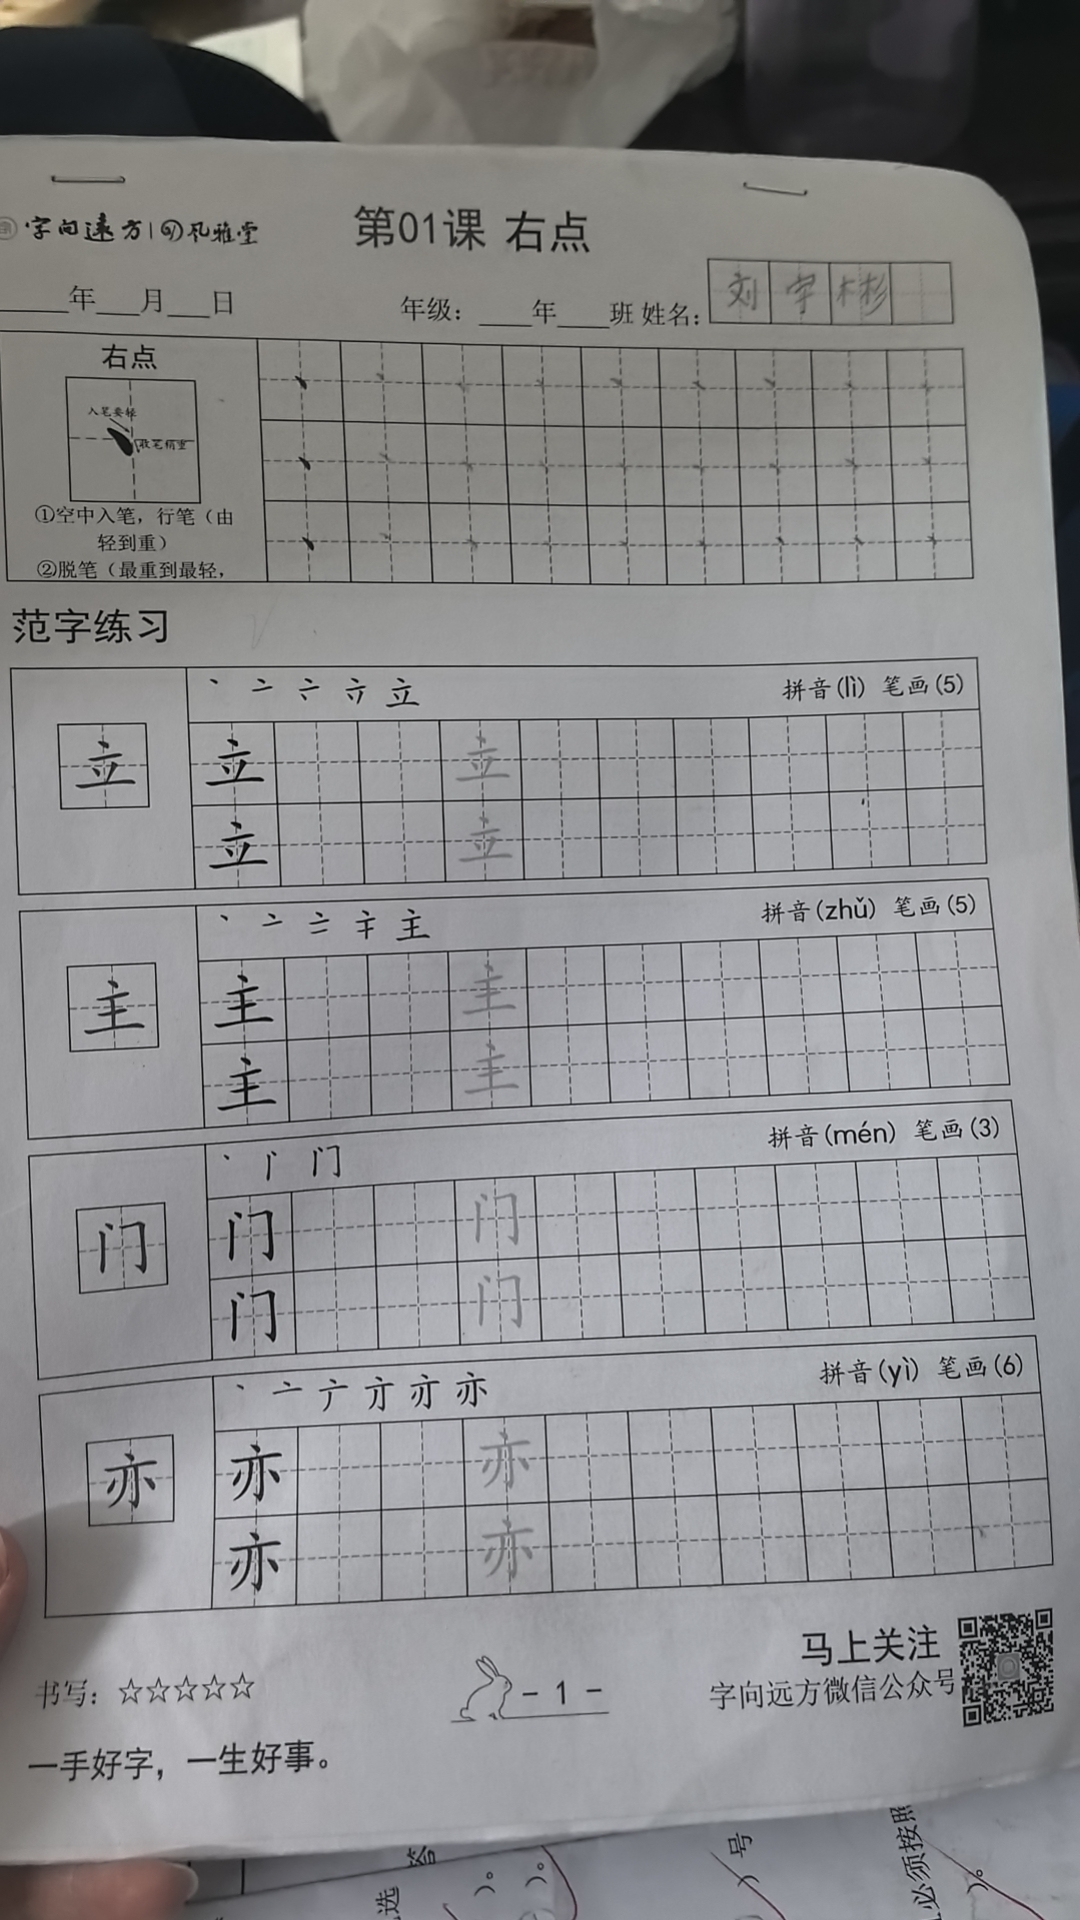 字向远方|凡雅堂
第01课 右点
____年___月___日 年级：____年____班 姓名：刘宇彬
右点
入笔要轻
收笔稍重
①空中入笔，行笔（由
轻到重）
②脱笔（最重到最轻，
范字练习
立 拼音(lì) 笔画(5)
立 立 立
立 立
主 拼音(zhǔ) 笔画(5)
主 主 主
主 主
门 拼音(mén) 笔画(3)
门 门 门
门 门
亦 拼音(yì) 笔画(6)
亦 亦 亦
亦 亦
马上关注
书写：☆☆☆☆☆ - 1 - 字向远方微信公众号
一手好字，一生好事。
选
答
)。
)。
)号
必须按照
)。